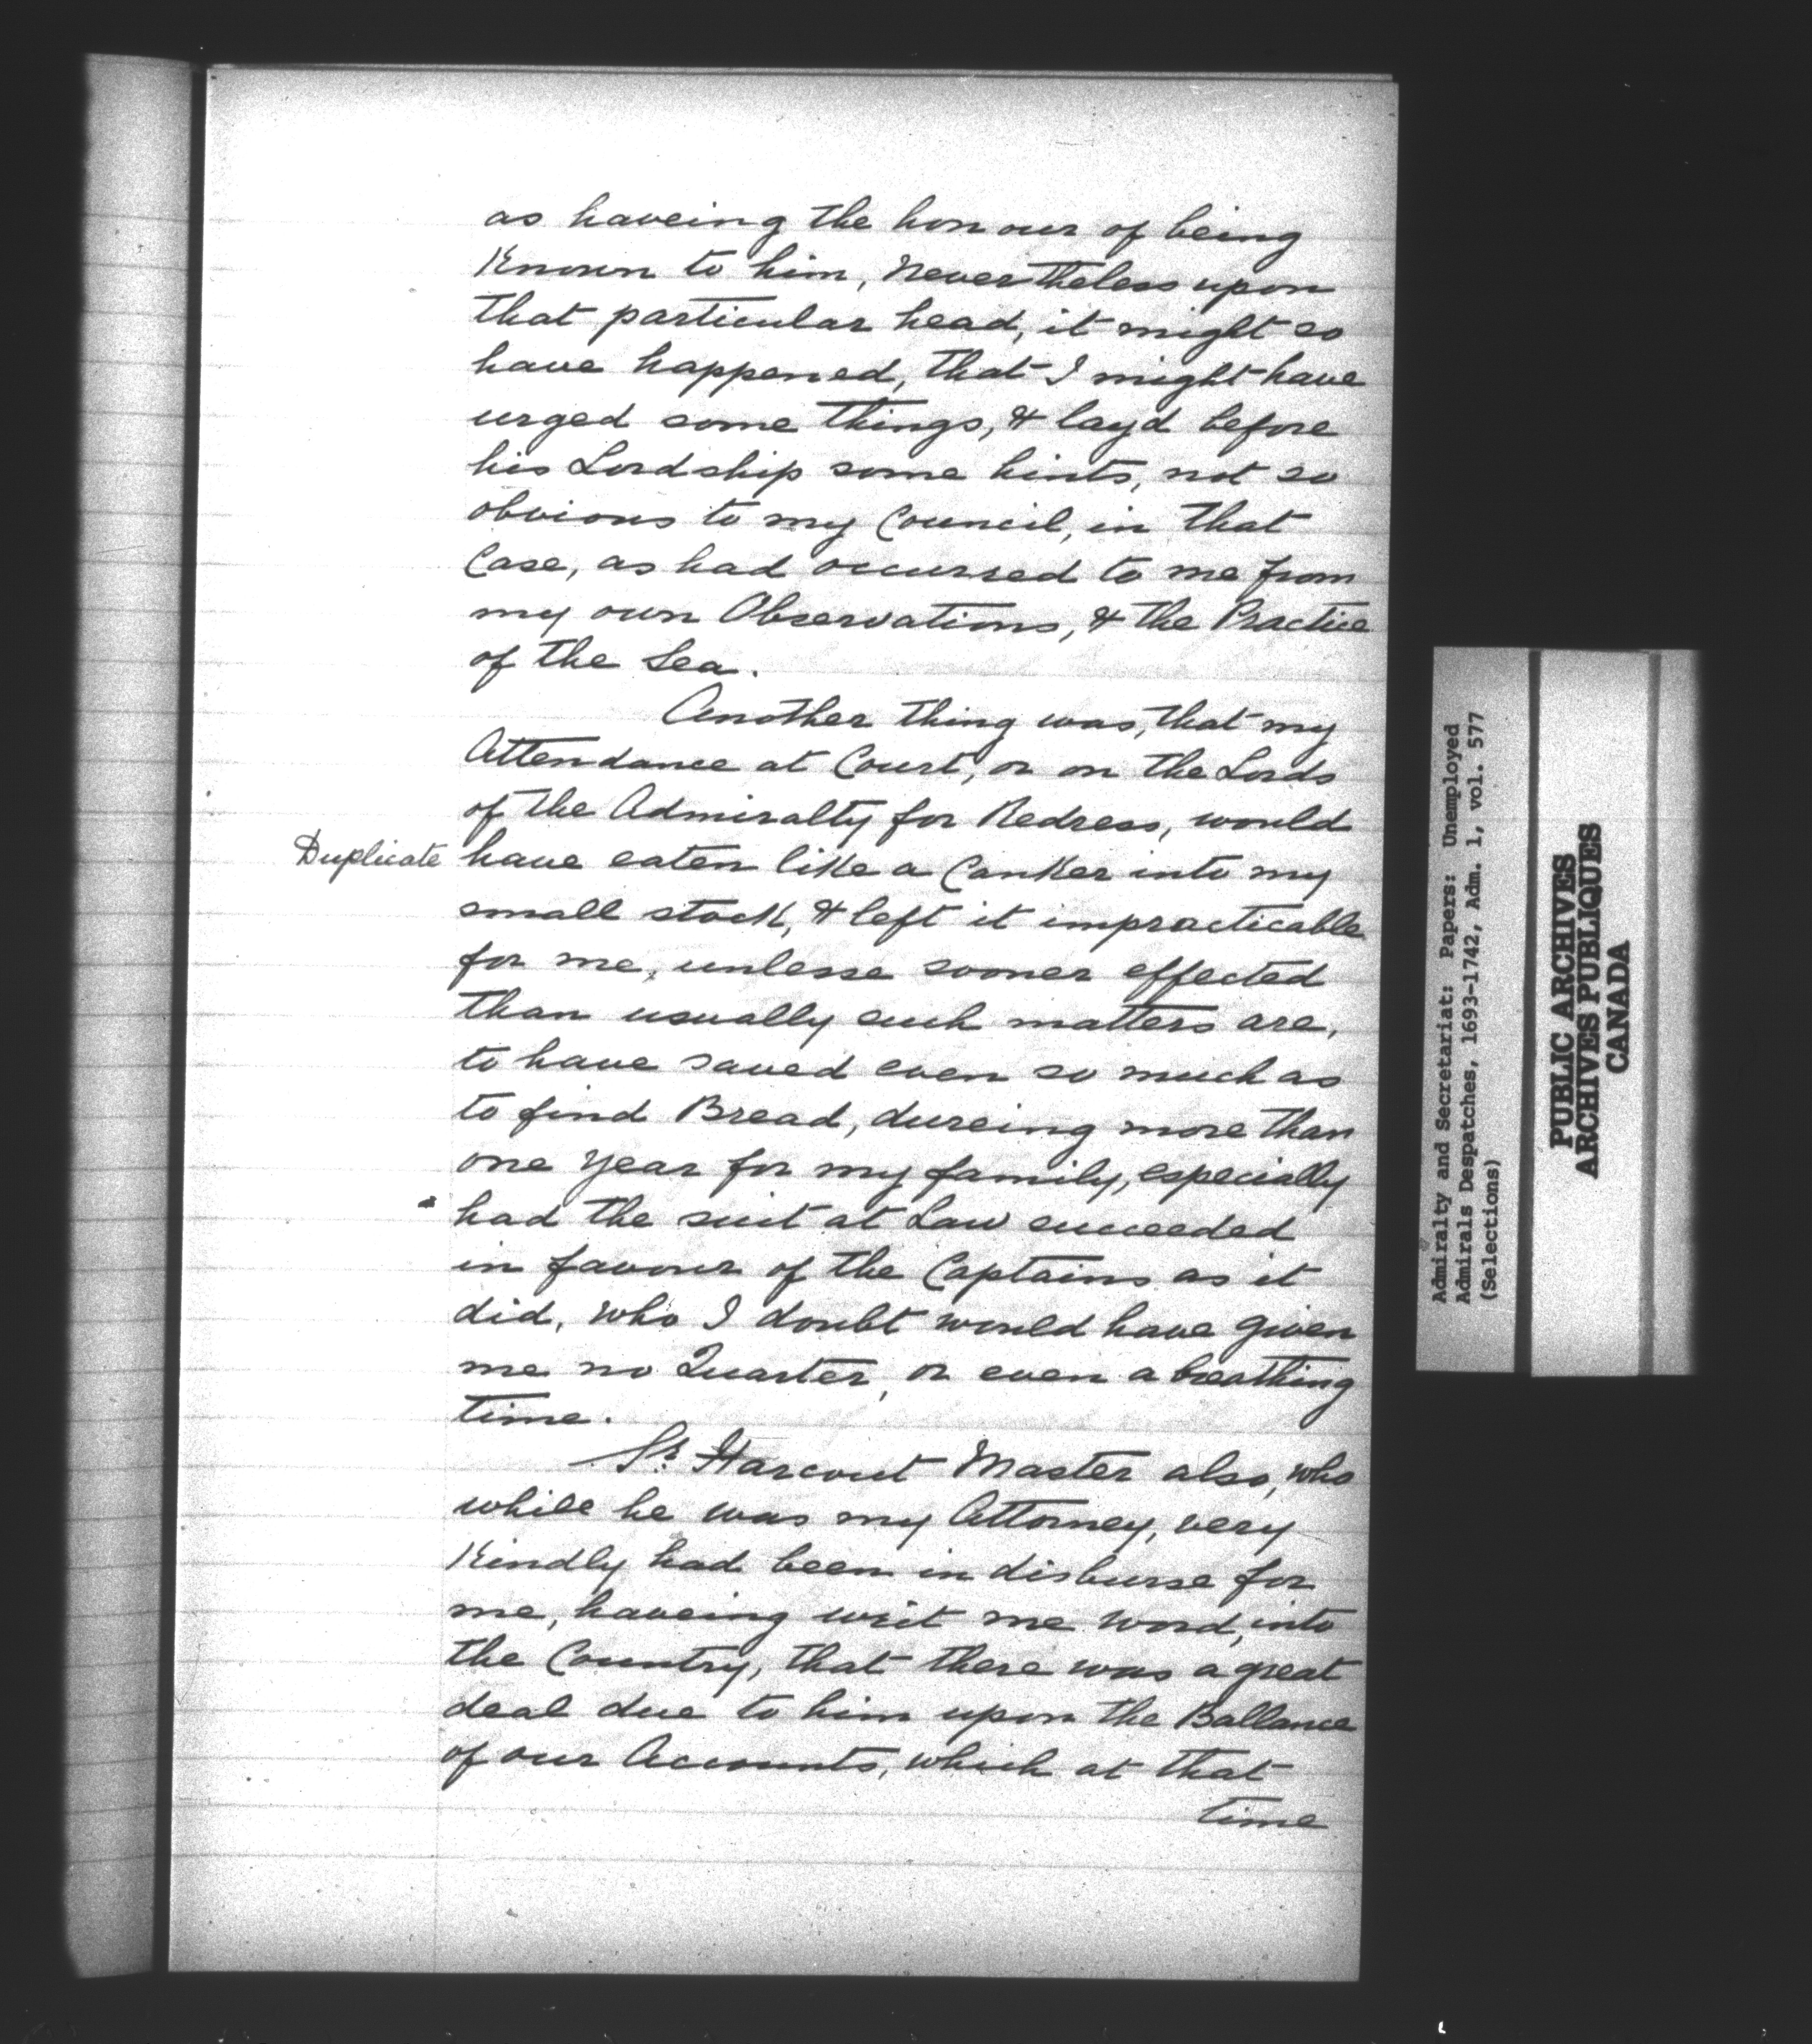 as haveing the honour of being
Known to him, Nevertheless upon
that particular head, it might so
have happened, that I might have
urged some things, & layd before
his Lordship some hints, not so
obvious to my Council, in that
Case, as had occurred to me from
my own Observations, & the Practice
of the Sea.
Another thing was, that my
Attendance at Court, or on the Lords
of the Admiralty for Redress, would
Duplicate
have eaten like a Canker into my
small stock, & left it impracticable
for me, unlesse sooner effected
than usually such matters are,
to have saved even so much as
to find Bread, dureing more than
one year for my family, especially
had the suit at Law succeeded
in favour of the Captains as it
did, who I doubt would have given
me no Quarter, or even a breathing
time.
Sr. Harcourt Master also, who
while he was my Attorney, very
Kindly had been in disburse for
me, haveing writ me word, into
the Country, that there was a great
deal due to him upon the Ballance
of our Accounts, which at that
time
Admiralty and Secretariat: Papers: Unemployed
Admirals Despatches, 1693-1742, Adm. 1, vol. 577
(Selections)
PUBLIC ARCHIVES
ARCHIVES PUBLIQUES
CANADA